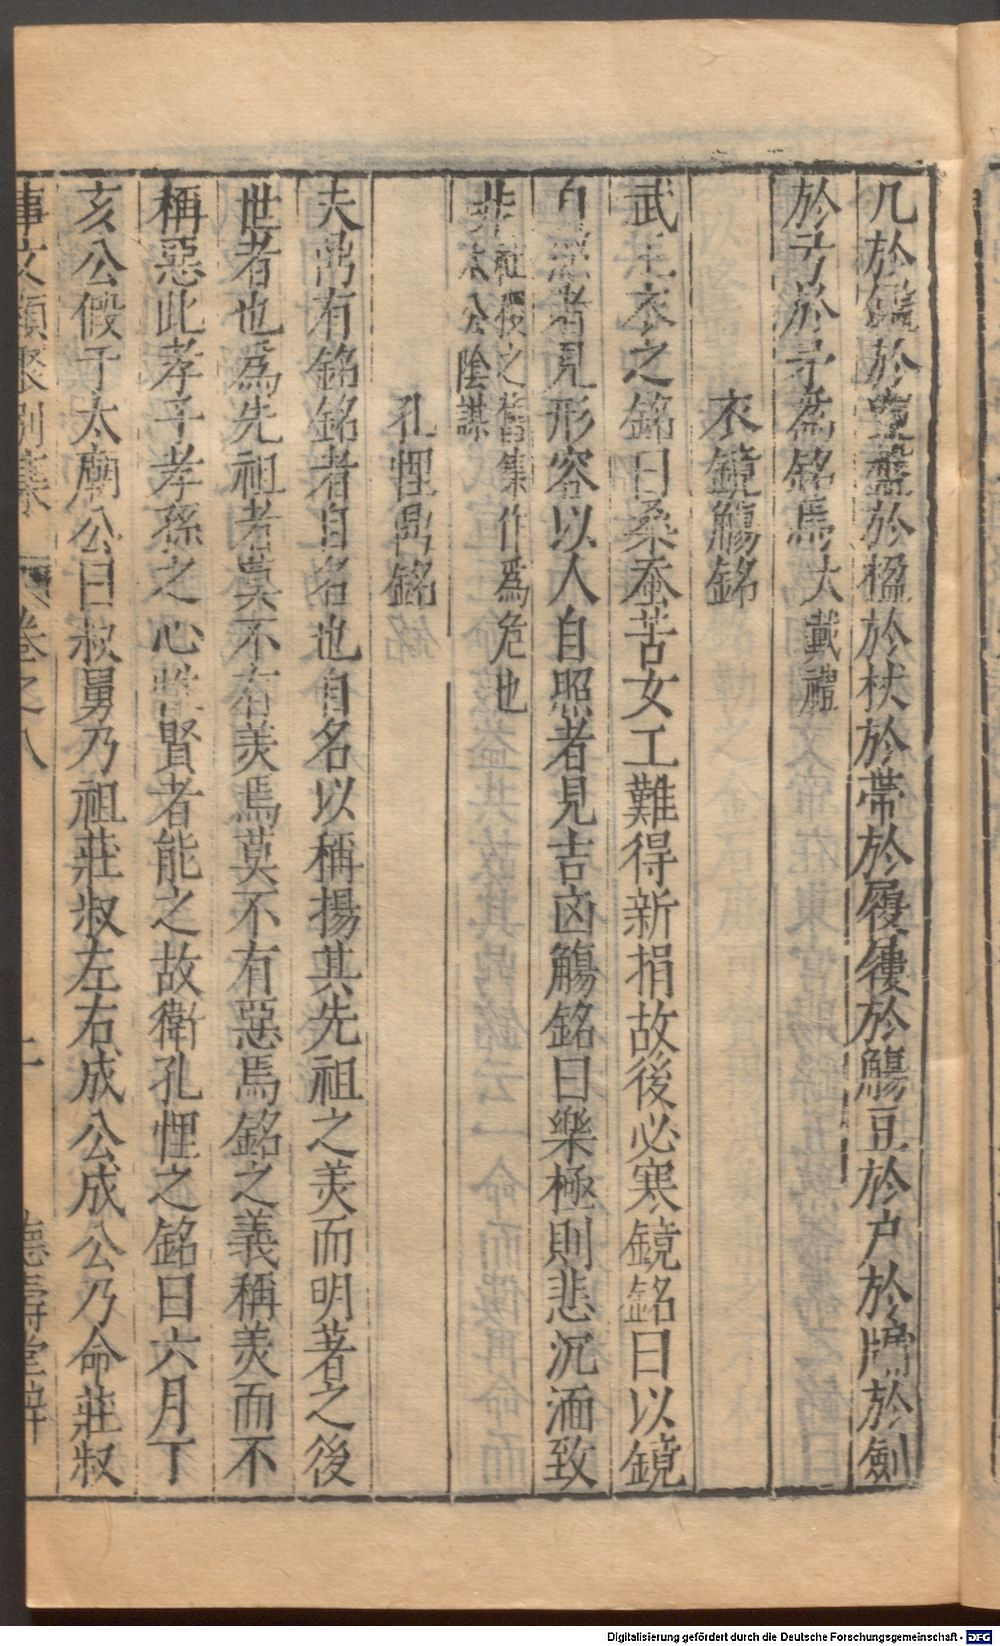 几於鑑於盥盤於楹於杖於帶於履屨於觴豆於户於牖於劍
於弓於矛為銘焉大戴禮
衣鏡觴銘
武王衣之銘曰桑蚕苦女工難得新捐故後必寒鏡銘曰以鏡
自照者見形容以人自照者見吉凶觴銘曰樂極則悲沉湎致
非社稷之舊集作爲危也
太公陰謀
孔悝鼎銘
夫鼎有銘銘者自名也自名以稱揚其先祖之美而明著之後
世者也爲先祖者莫不有美焉莫不有惡焉銘之義稱美而不
稱惡此孝子孝孫之心惟賢者能之故衛孔悝之銘曰六月丁
亥公假于太廟公曰叔舅乃祖莊叔左右成公成公乃命莊叔
事文類聚别集
卷之八
二
德壽堂梓
Digitalisierung gefördert durch die Deutsche Forschungsgemeinschaft - DFG